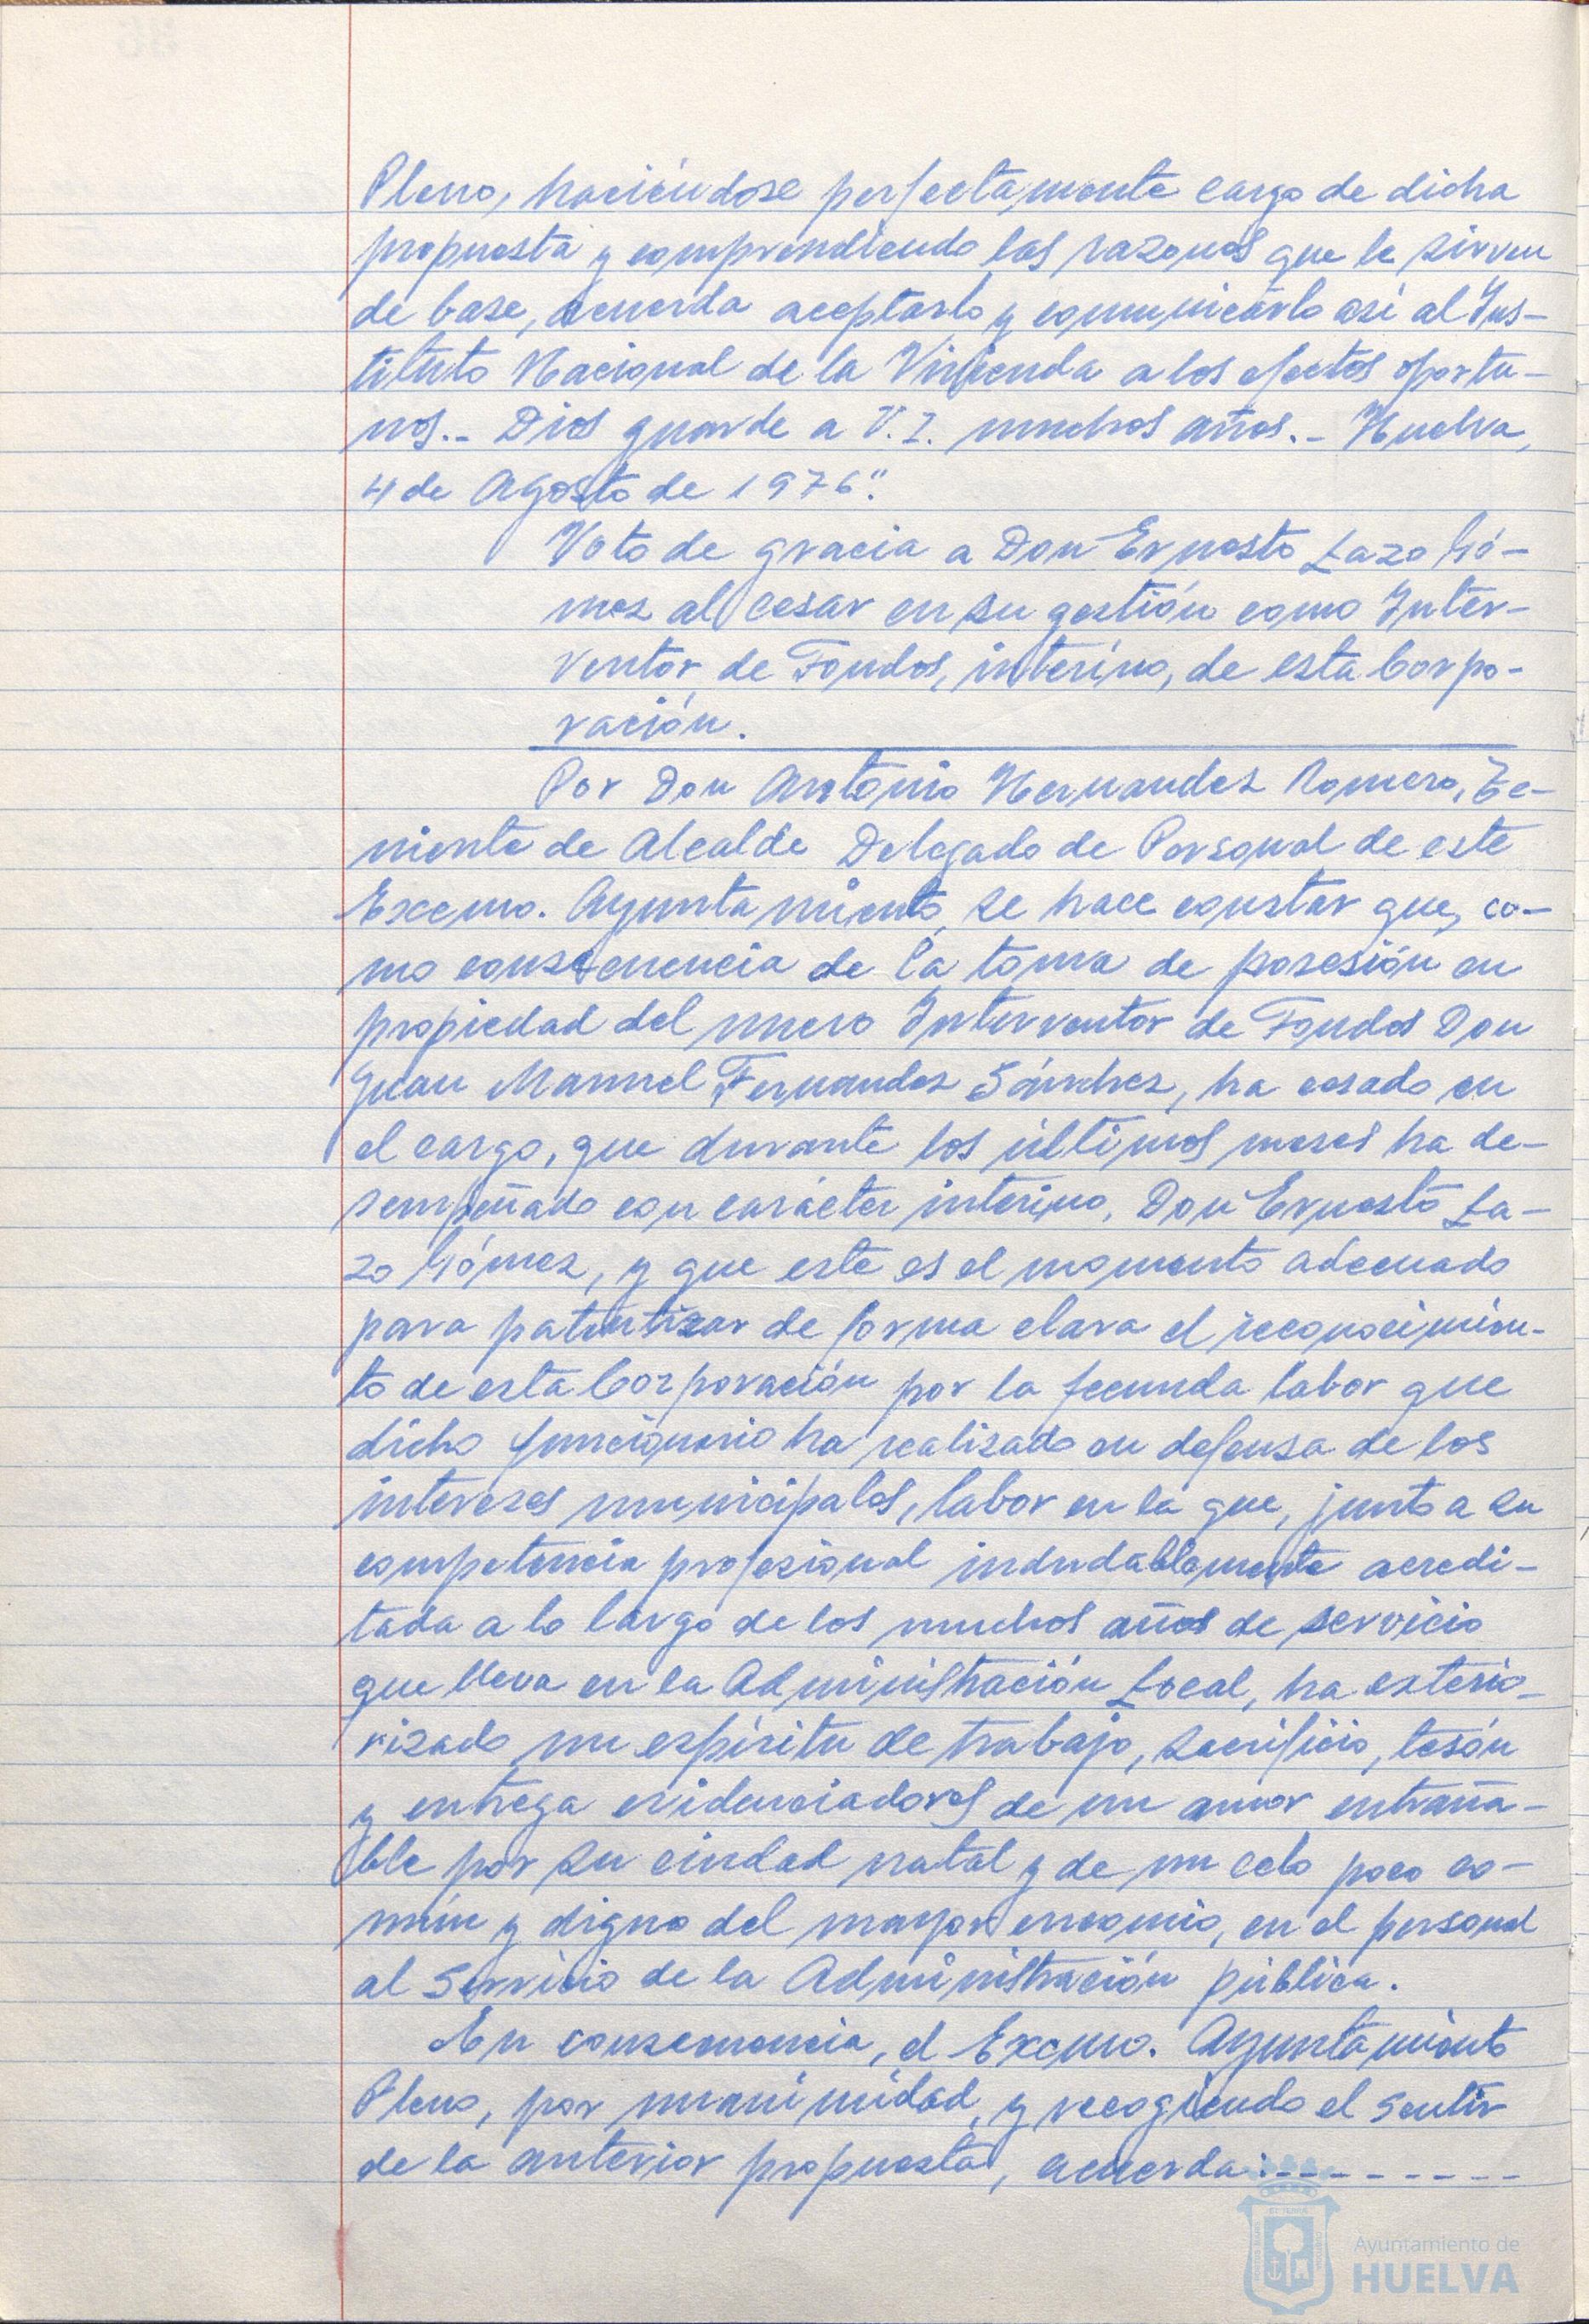 Pleno, haciéndose perfectamente cargo de dicha
propuesta y comprendiendo las razones que le sirven
de base, acuerda aceptarlo y comunicarlo así al Ins-
tituto Nacional de la Vivienda a los efectos oportu-
nos.- Dios guarde a V.I. muchos años.- Huelva,
4 de Agosto de 1976".
Voto de gracia a Don Ernesto Lazo Gó-
mez al cesar en su gestión como Inter-
ventor de Fondos, interino, de esta Corpo-
ración.
Por Don Antonio Hernandez Romero, Te-
niente de Alcalde Delegado de Personal de este
Excmo. Ayuntamiento, se hace constar que, co-
mo consecuencia de la toma de posesión en
propiedad del nuevo Interventor de Fondos Don
Juan Manuel Fernandez Sánchez, ha cesado en
el cargo, que durante los últimos meses ha de-
sempeñado con carácter interino, Don Ernesto La-
zo Gómez, y que este es el momento adecuado
para patentizar de forma clara el reconocimien-
to de esta Corporación por la fecunda labor que
dicho funcionario ha realizado en defensa de los
intereses municipales, labor en la que, junto a su
competencia profesional indudablemente acredi-
tada a lo largo de los muchos años de servicio
que lleva en la Administración Local, ha exterio-
rizado un espíritu de trabajo, sacrificio, tesón
y entrega evidenciadores de un amor entraña-
ble por su ciudad natal y de un celo poco co-
mún y digno del mayor encomio, en el personal
al Servicio de la Administración pública.
En consecuencia, el Excmo. Ayuntamiento
Pleno, por unanimidad, y recogiendo el sentir
de la anterior propuesta, acuerda:---------
Ayuntamiento de
HUELVA